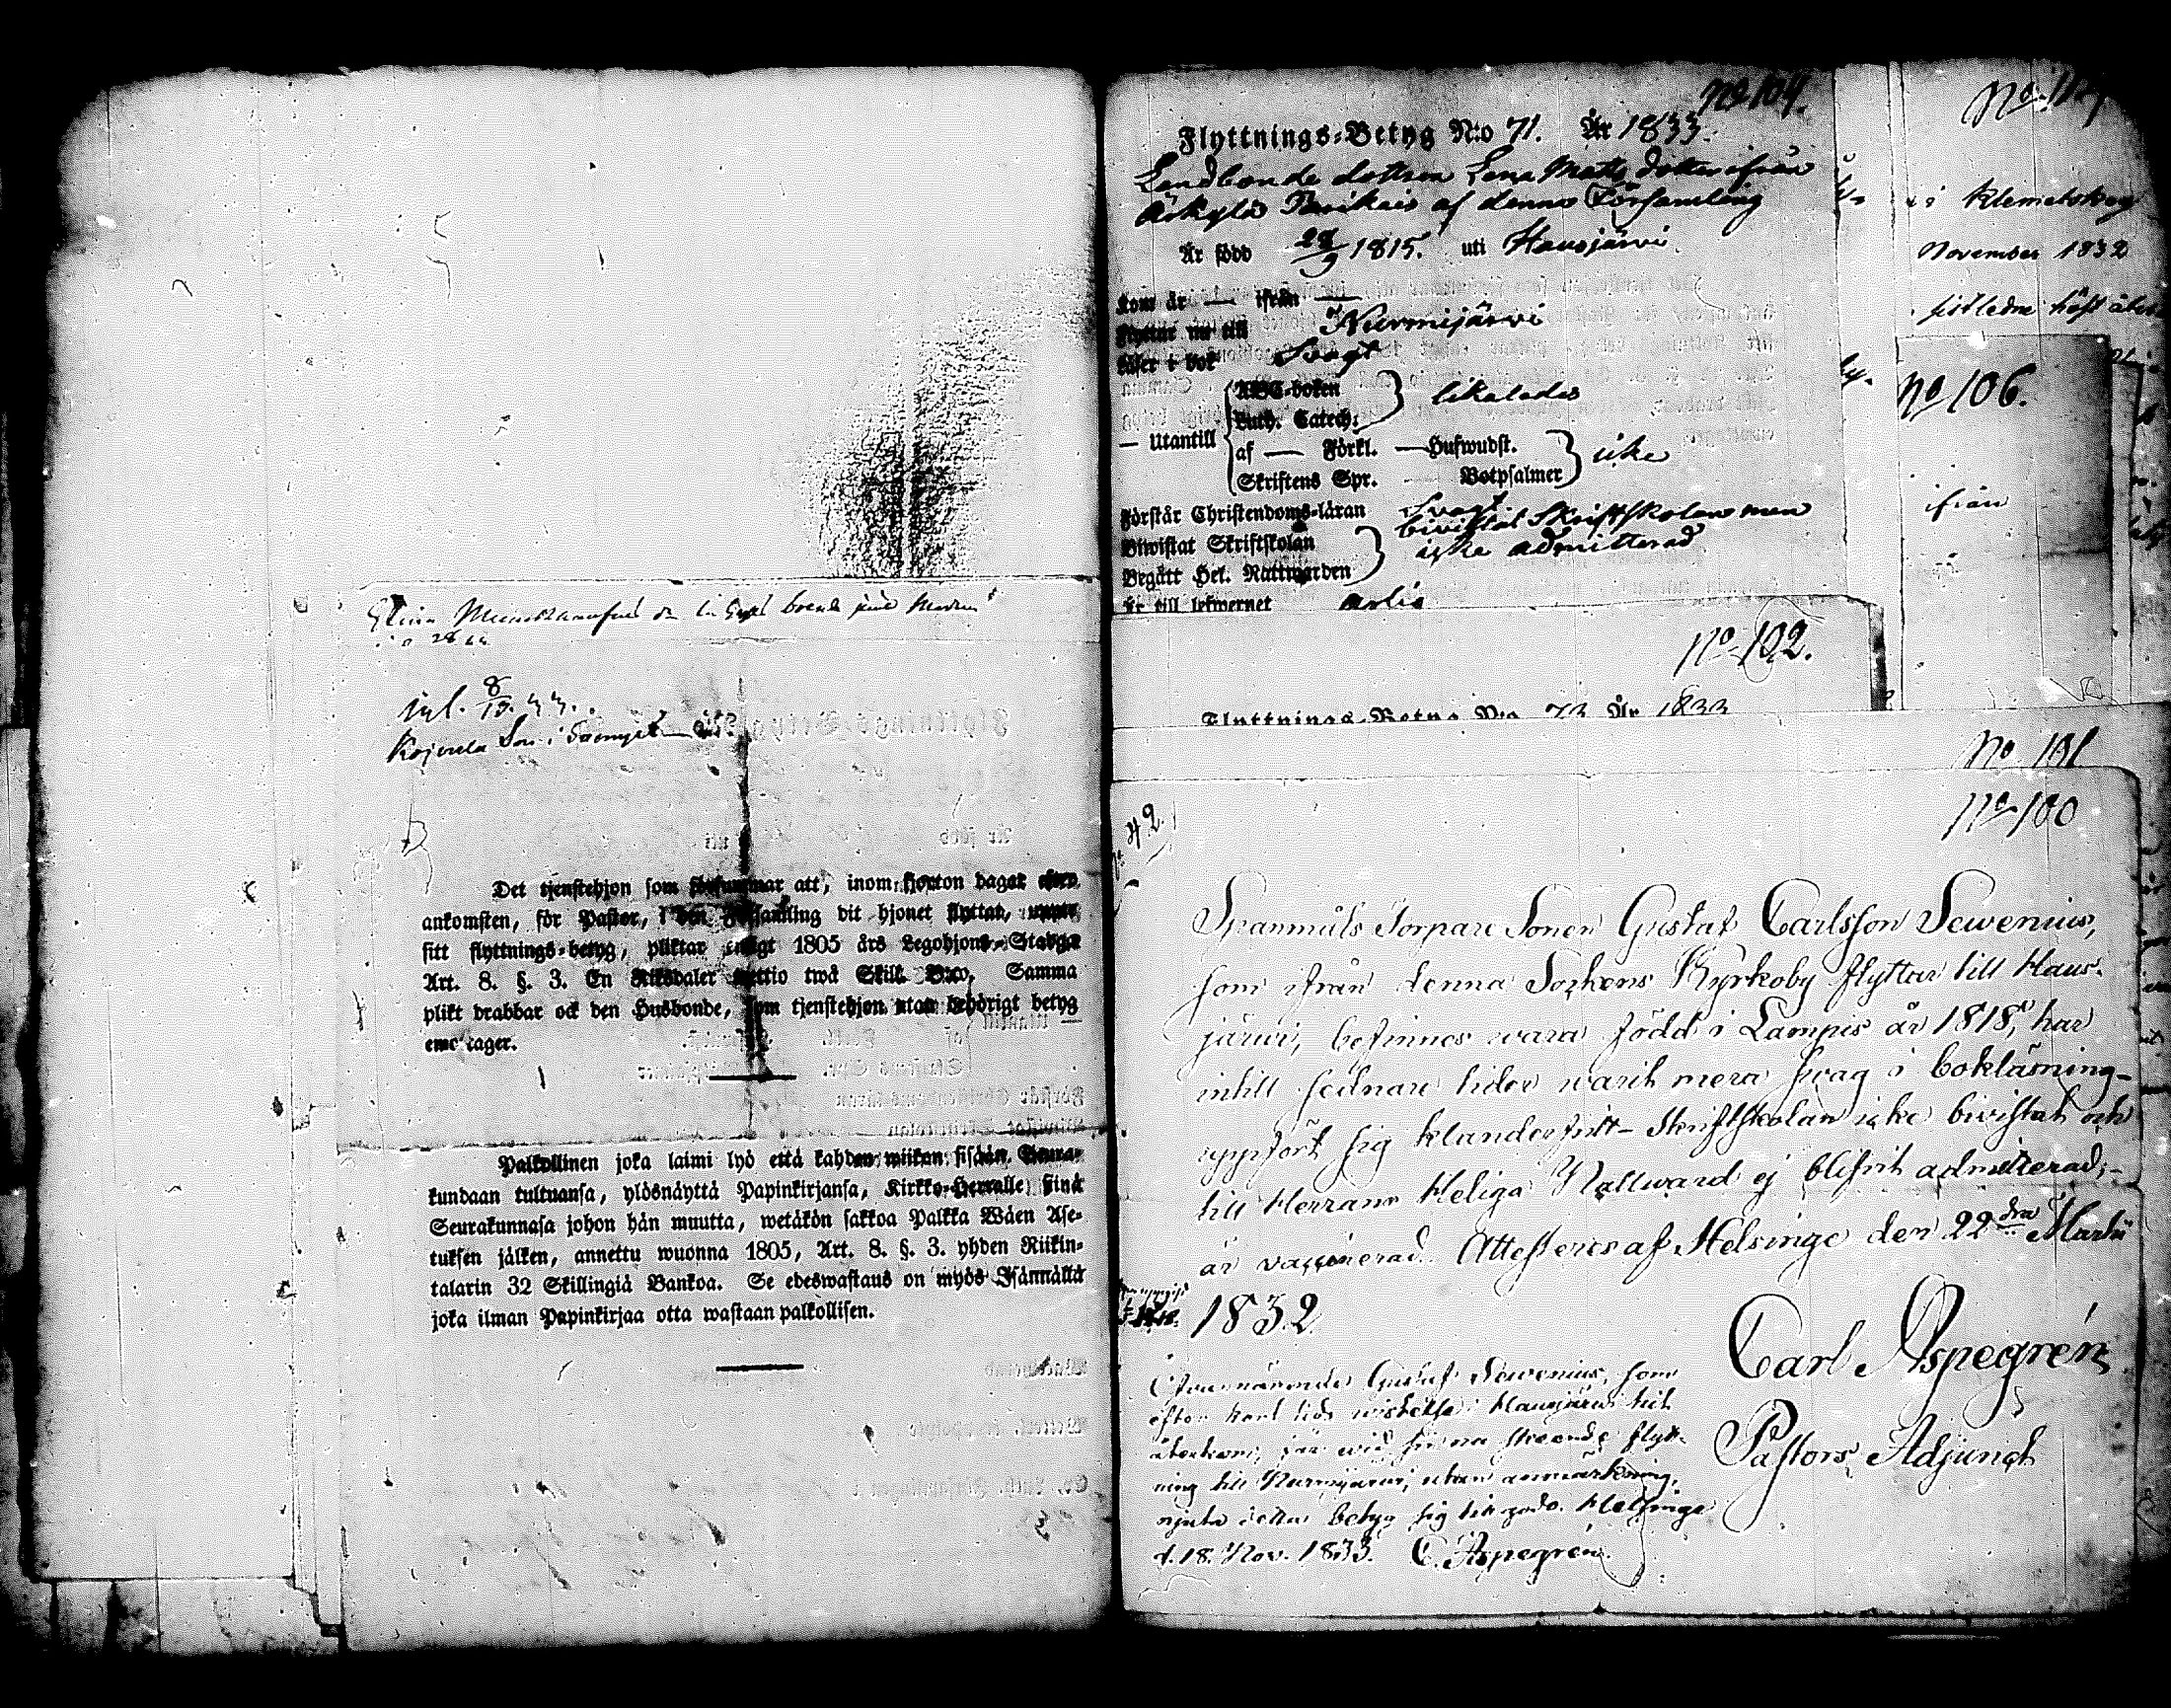 inl. 8/10. 33.
Det tjenstehjon som försummar att, inom fjorton dagar efter
ankomsten, för Pastor, i den Församling dit hjonet flyttat, uppte
sitt flyttnings-betyg, pliktar enligt 1805 års Legohjons-Stadga
Art. 8. §. 3. En Riksdaler trettio twå Skill. B:co. Samma
plikt drabbar ock den Husbonde, som tjenstehjon utan behörigt betyg
emottager.
Palkollinen joka laimi lyö että kahden wiikon sisään Seura-
kundaan tultuansa, ylösnäyttä Papinkirjansa, Kirkko-Herralle siinä
Seurakunnasa johon hän muutta, wetäkön sakkoa Palkka Wäen Ase-
tuksen jälken, annettu wuonna 1805, Art. 8. §. 3. yhden Riikin-
talarin 32 Skillingiä Bankoa. Se edeswastaus on myös Isännällä
joka ilman Papinkirjaa otta wastaan palkollisen.
No 104.
Flyttnings-Betyg N:o 71. År 1833.
Landbonde dottren Lena Matts dotter ifrån
af denna Församling
Är född 28/9 1815. uti Hausjärvi
Kom år — ifrån —
Flyttar nu till Nurmijärvi
Läser i bok Svagt
— Utantill
ABC-boken
Luth. Catech:
likaledes
af — Förkl. — Hufwudst.
Skriftens Spr. — Botpsalmer
icke
Förstår Christendoms-läran Svagt
Biwistat Skriftskolan bivistat Skriftskolan men
Begått Hel. Nattwarden icke admitterad
Är till lefwernet ärlig
Klemetskog
November 1832
sistledne höst åter
No 106.
ifrån
No 102.
Flyttnings-Betyg N:o 73 År 1833
No 101
No 100
42
Spanmåls Torpare Sonen Gustaf Carlsson Sewenius,
som ifrån denna Sockens Kyrkoby flyttar till Haus-
järwi, befinnes wara född i Lampis år 1818, har
intill sednare tider warit mera swag i bokläsning –
uppfört sig klanderfritt – Skriftskolan icke bivistat och
till Herrans Heliga Nattward ej blifvit admitterad; –
är vaccinerad. Attesteras af Helsinge den 22dra Martii
1832
Carl Aspegrén
Pastors Adjunct
Ofvannämnde Gustaf Sewenius, som
efter kort tids wistelse i Hausjärwi hit
återkom, får wid sin nu skeende flytt-
ning till Nurmijärwi, utan anmärkning,
njuta detta betyg sig till godo. Helsinge
d. 18. Nov. 1833. C. Aspegrén.